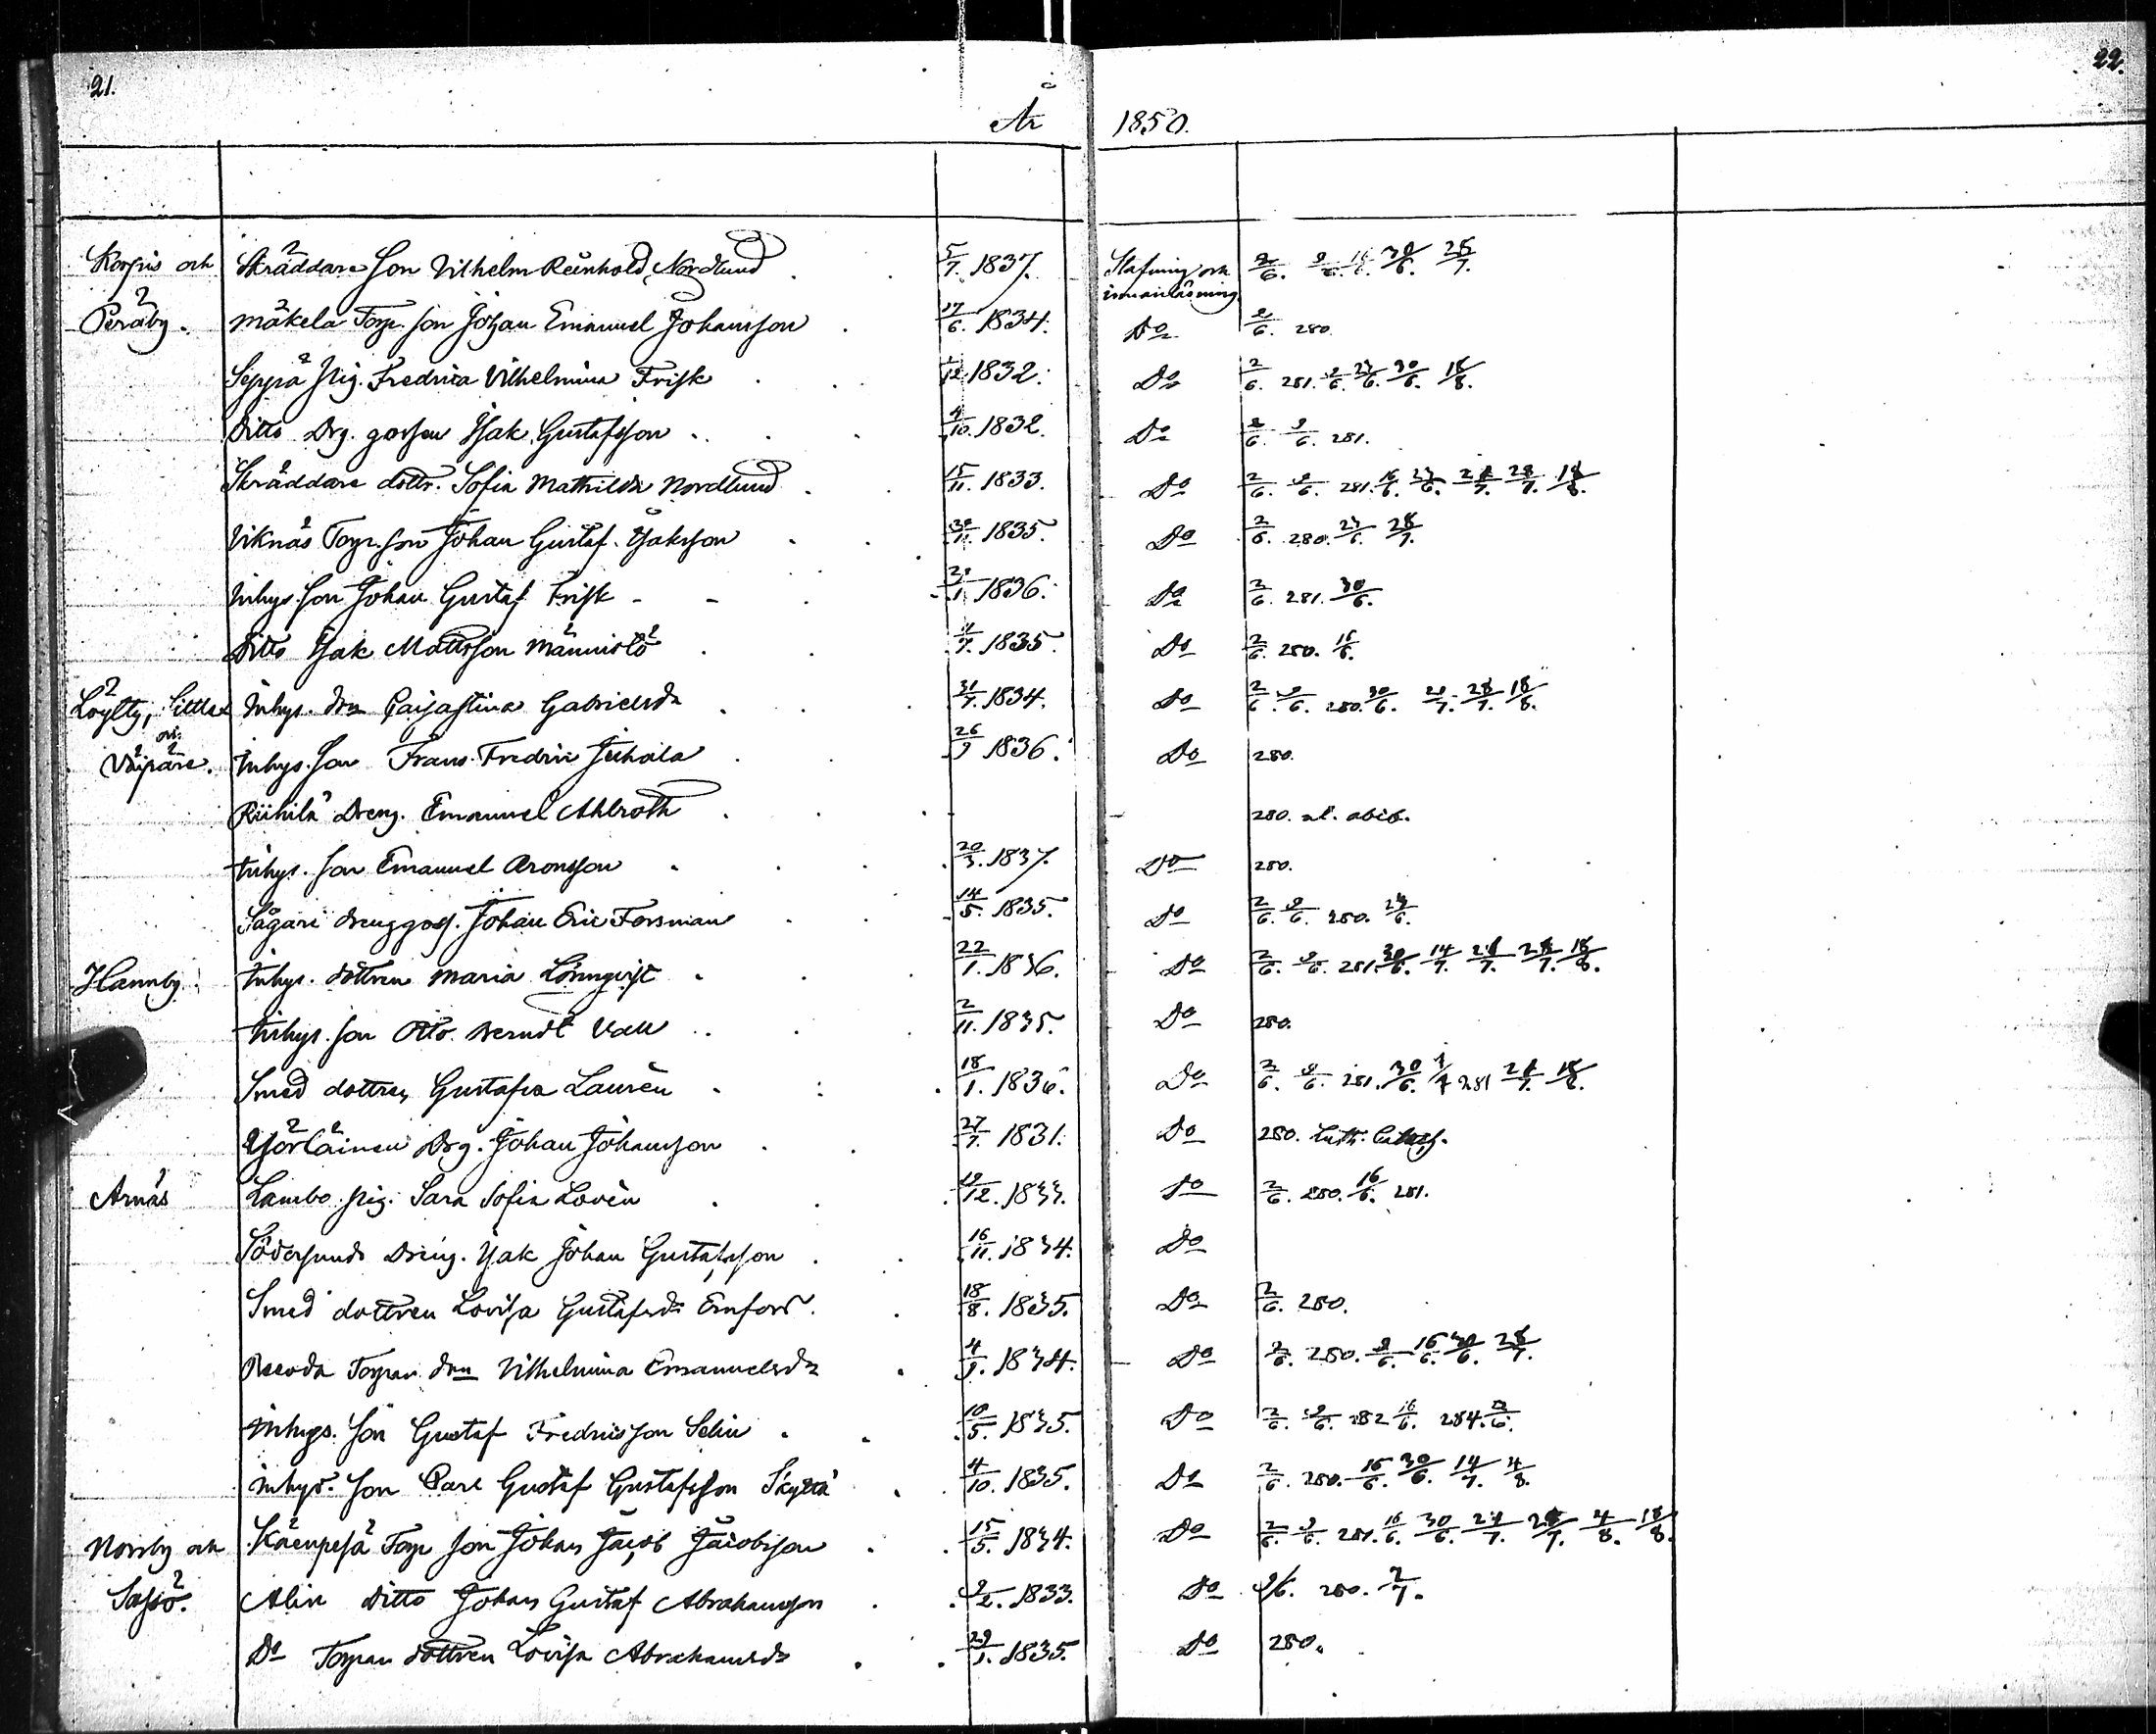 21.
22.
År 1850.
Korpis och Skräddare Son Vilhelm Reinhold Nordlund 5/7. 1837. Stafning och innanläsning 2/6. 9/6. 16/6. 30/6. 28/7.
Peräby. Mäkelä Torp. Son Johan Emanuel Johansson 17/6. 1834. Do 2/6. 280.
Seppä Pig. Fredrica Vilhelmina Frisk 1/12 1832. Do 2/6. 281. 9/6. 23/6. 30/6. 18/8.
Ditto Drg. gossen Isak Gustafsson 4/10. 1832. Do 2/6. 9/6. 281.
Skräddare dottr. Sofia Mathilda Nordlund 15/11. 1833. Do 2/6. 9/6. 281. 16/6. 23/6. 21/7. 28/7. 18/8.
Viknäs Torp. Son Johan Gustaf Isaksson 30/11. 1835. Do 2/6. 280. 23/6. 28/7.
Inhys. Son Johan Gustaf Frisk 1836. Do 2/6. 281. 30/6.
Ditto Isak Mattsson Männistö 1835. Do 2/6. 280. 16/6.
Löylty, Sittla Inhys. drn Cajsastina Gabrielsdr 31/7. 1834. Do 2/6. 9/6. 280. 30/6. 21/7. 28/7. 18/8.
och Väipäre. Inhys. Son Frans Fredric Juhola 26/9 1836. Do 280.
Riihilä Dreng. Emanuel Ahlroth 280. al. abib.
Inhys. Son Emanuel Aronsson 20/3. 1837. Do 280.
Sågare drenggoss. Johan Eric Forsman 14/5. 1835. Do 2/6. 9/6. 280. 23/6.
Hannby. Inhys. dottren Maria Lönnqvist 22/1. 1836. Do 2/6. 9/6. 281. 30/6. 14/7. 21/7. 28/7. 18/8.
Inhys. Son Otto Berndt Vall 2/11. 1835. Do 280.
Smed dottren Gustafva Laurèn 18/1. 1836. Do 2/6. 9/6. 281. 30/6. 281 21/7. 18/8.
Drg. Johan Johansson 27/7. 1831. Do 280.
Arnäs Lambo Pig. Sara Sofia Lovèn 1833. Do 2/6. 280. 16/6. 281.
Södersunds Dreng. Isak Johan Gustafsson 16/11. 1834. Do
Smed dottren Lovisa Gustafsdr Ernfors. 18/8. 1835. Do 2/6. 280.
Torpar. drn Vilhelmina Emanuelsdr 4/9. 1834. Do 2/6. 280. 9/6. 16/6. 30/6. 28/7.
Inhys. Son Gustaf Fredricsson Selin 10/5. 1835. Do 2/6. 9/6. 282 16/6. 284.
Inhys. Son Carl Gustaf Gustafsson Skyttä 4/10. 1835. Do 2/6. 280. 16/6. 30/6. 14/7. 4/8.
Norrby och Torp Son Johan Jacob Jacobsson 15/5. 1834. Do 2/6. 9/6. 281. 16/6. 30/6. 21/7. 28/7. 4/8. 18/8.
Salsö. Alin Ditto Johan Gustaf Abrahamsson 9/2. 1833. Do 9/6. 280. 7/7.
Do Torpar dottren Lovisa Abrahamsdr 29/1. 1835. Do 280.